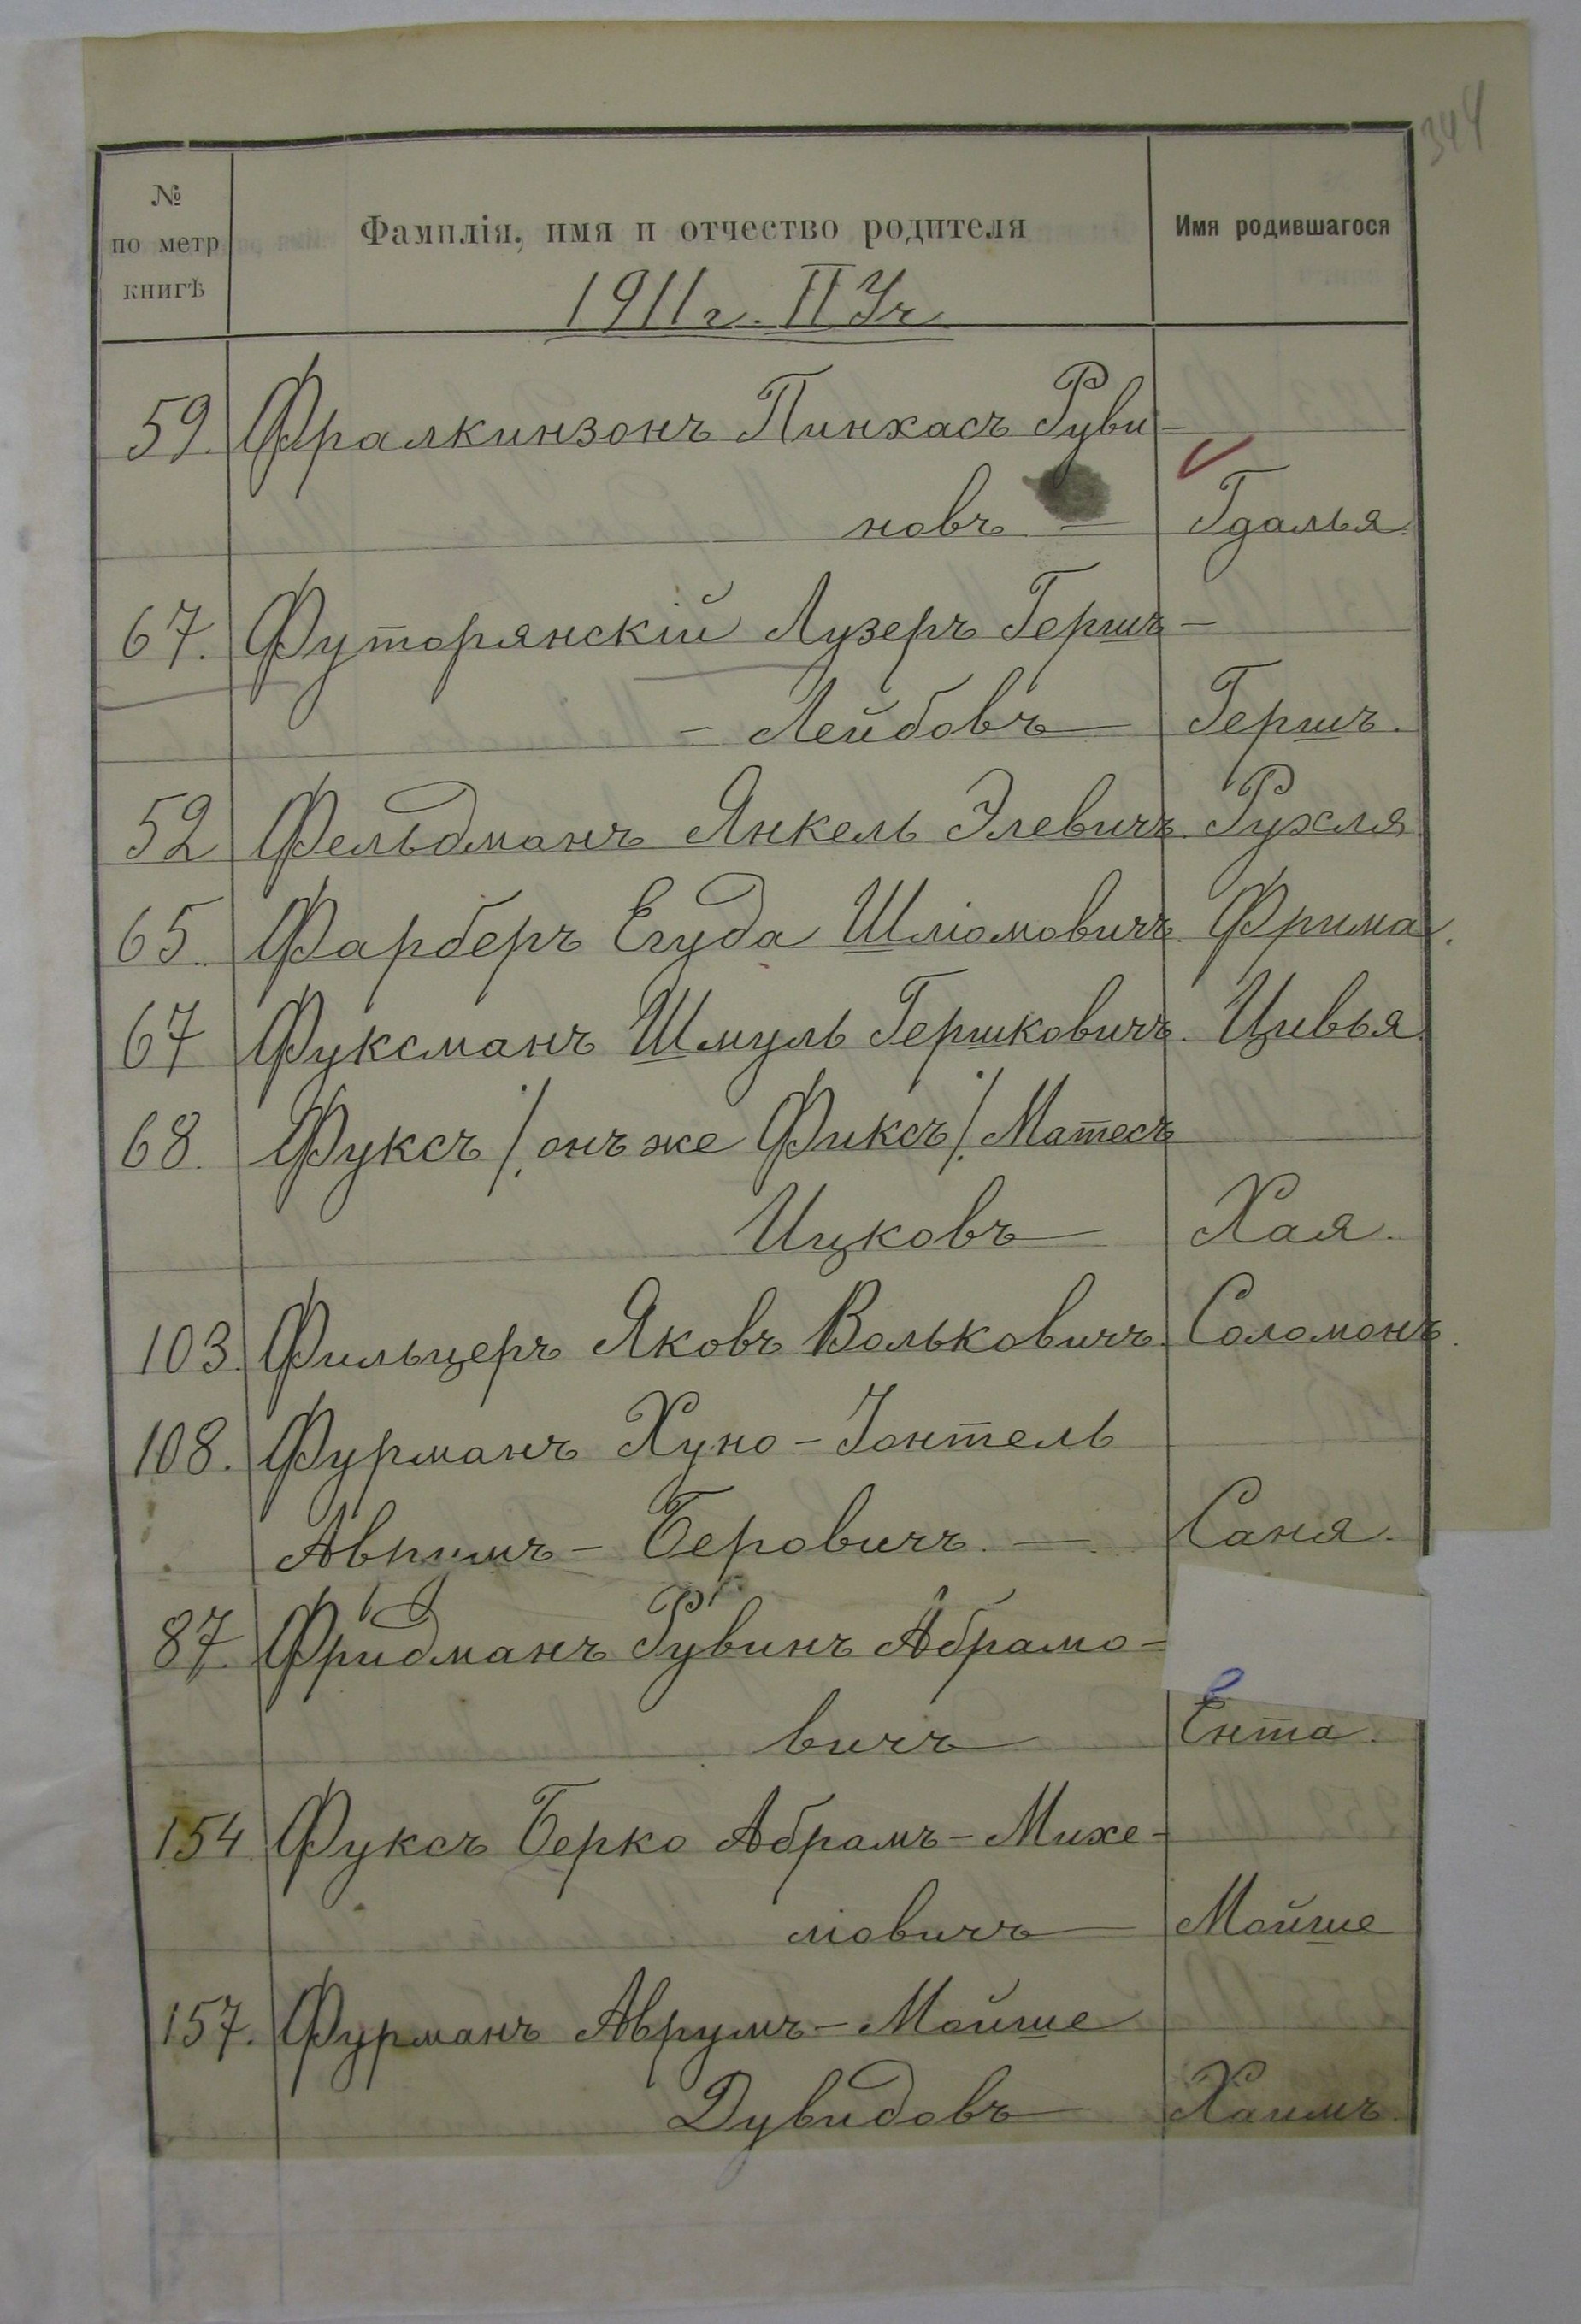 344
№
по метр
книгѣ
Фамилія, имя и отчество родителя
Имя родившагося
1911 г. II Уч.
59. Фралкинзонъ Пинхасъ Руви-
новъ — Гдалья.
67. Футорянскій Лузеръ Гершъ-
- Лейбовъ — Гершъ.
52 Фельдманъ Янкель Элевичъ. Рухля
65. Фарберъ Егуда Шліомовичъ. Фрима.
67 Фуксманъ Шмуль Гершковичъ. Цивья.
68. Фуксъ /. онъ же Фиксъ /. Матесъ
Ицковъ — Хая.
103. Фильцеръ Яковъ Вольковичъ. Соломонъ.
108. Фурманъ Хуно-Іонтель
Аврумъ - Беровичъ. — Саня.
87. Фридманъ Рувинъ Абрамо-
вичъ — Ента.
154 Фуксъ Берко Абрамъ-Михе-
ліовичъ — Мойше
157. Фурманъ Аврумъ-Мойше
Дувидовъ — Хаимъ.